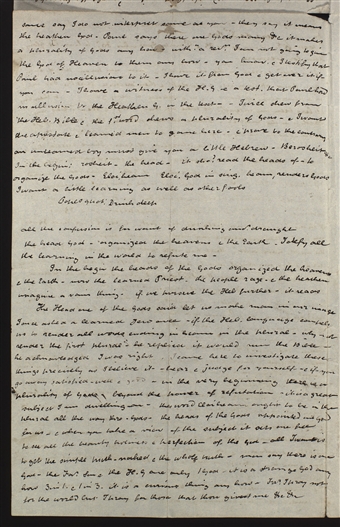 some say I do not interpret same as you - they say it means
the heathen God. Paul says there are Gods many &c it makes
a plurality of Gods any how - with a I am not going to give
the God of Heaven to them any how - you know & I testify that
Paul had no allusions to it - I have it from God & get over it if
you can - I have a witness of the H.G. & a test. that Paul had
no allusion to the Heathen G. in the text - I will shew from
the Heb. Bible & the 1st word shews a plurality of Gods - & I want
the apostate & learned men to come here - & prove to the contrary
an unlearned boy must give you a little Hebrew - Berosheit
In the begin. rosheit - the head - it shod. read the heads of - to
organize the Gods - Eloiheam Eloi. God in sing. heam, renders Gods
I want a little learning as well as other fools
Popes quot. Drink deep
all the confusion is for want of drinking and draught
the head God - organized the heavens & the Earth - I defy all
the learning in the world to refute me -
In the begin the heads of the Gods organized the heavens
& the Earth - now the learned Priest - the people rage - & the heathen
imagine a vain thing - if we pursue the Heb further - it reads
The Head one of the Gods said let us make man in our image
I once asked a learned Jew once - if the Heb. language compels
us to render all words ending in heam in the plural - why not
render the first plural - he replied it would ruin the Bible -
he acknowledged I was right I came here to investigate these
things precisely as I believe it - hear & judge for yourself - & if you
go away satisfied - well & good - in the very beginning there is a
plurality of Gods - beyond the power of refutation - it is a great
subject I am dwelling on - the word Eloiheam ought to be in the
plural all the way thro - Gods - the heads of the Gods appointed one God
for us - & when you take a view of the subject it sets one free
to see all the beauty holiness & perfection of the God - all I want is
to get the simple truth - naked & the whole truth - men say there is one
God - the Far. Son & the H.G. are only 1 God - it is a strange God any
how 3 in 1. & 1 in 3. it is a curious thing any how - Far. I pray not
for the world but I pray for those that thou givest me &c &c